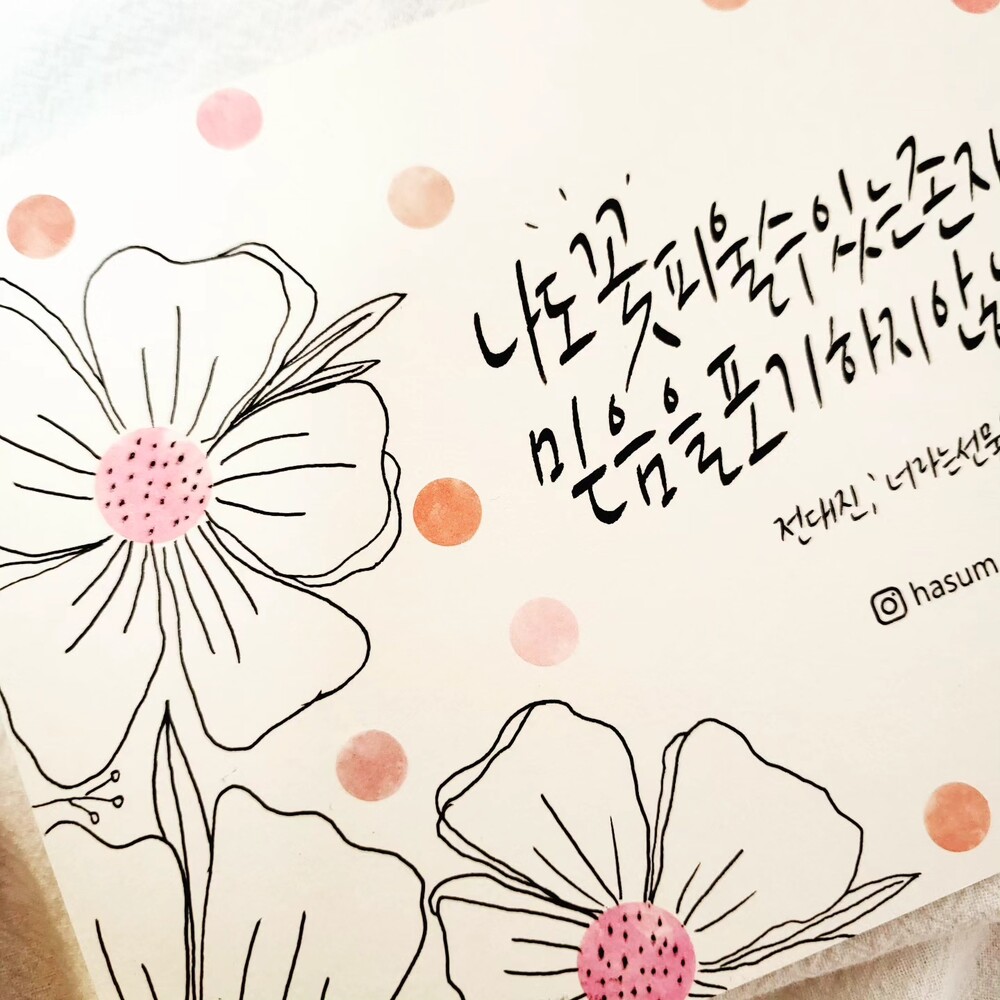 나도 꽃 피울 수 있는 존재
믿음을 포기하지 않
전대진, 너라는 선물
hasum